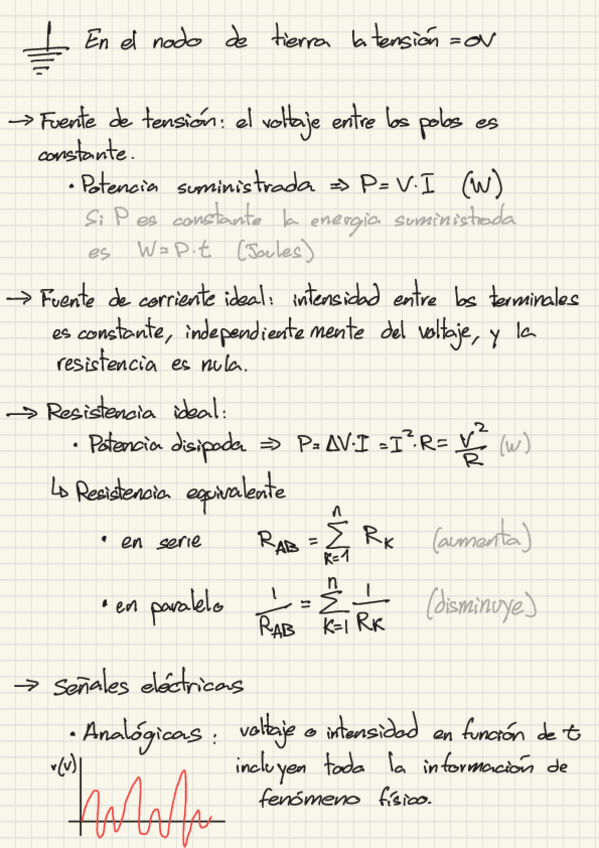 En el nodo de tierra la tensión = 0V
→ Fuente de tensión: el voltaje entre los polos es
constante.
• Potencia suministrada ⇒ P = V·I (W)
Si P es constante la energía suministrada
es W = P·t (Joules)
→ Fuente de corriente ideal: intensidad entre los terminales
es constante, independientemente del voltaje, y la
resistencia es nula.
→ Resistencia ideal:
• Potencia disipada ⇒ P = ΔV·I = I²·R = V²/R (W)
↳ Resistencia equivalente
• en serie R_AB = Σ_{k=1}^{n} R_K (aumenta)
• en paralelo 1/R_AB = Σ_{k=1}^{n} 1/R_K (disminuye)
→ Señales eléctricas
• Analógicas: voltaje o intensidad en función de t
v(V) incluyen toda la información de
fenómeno físico.